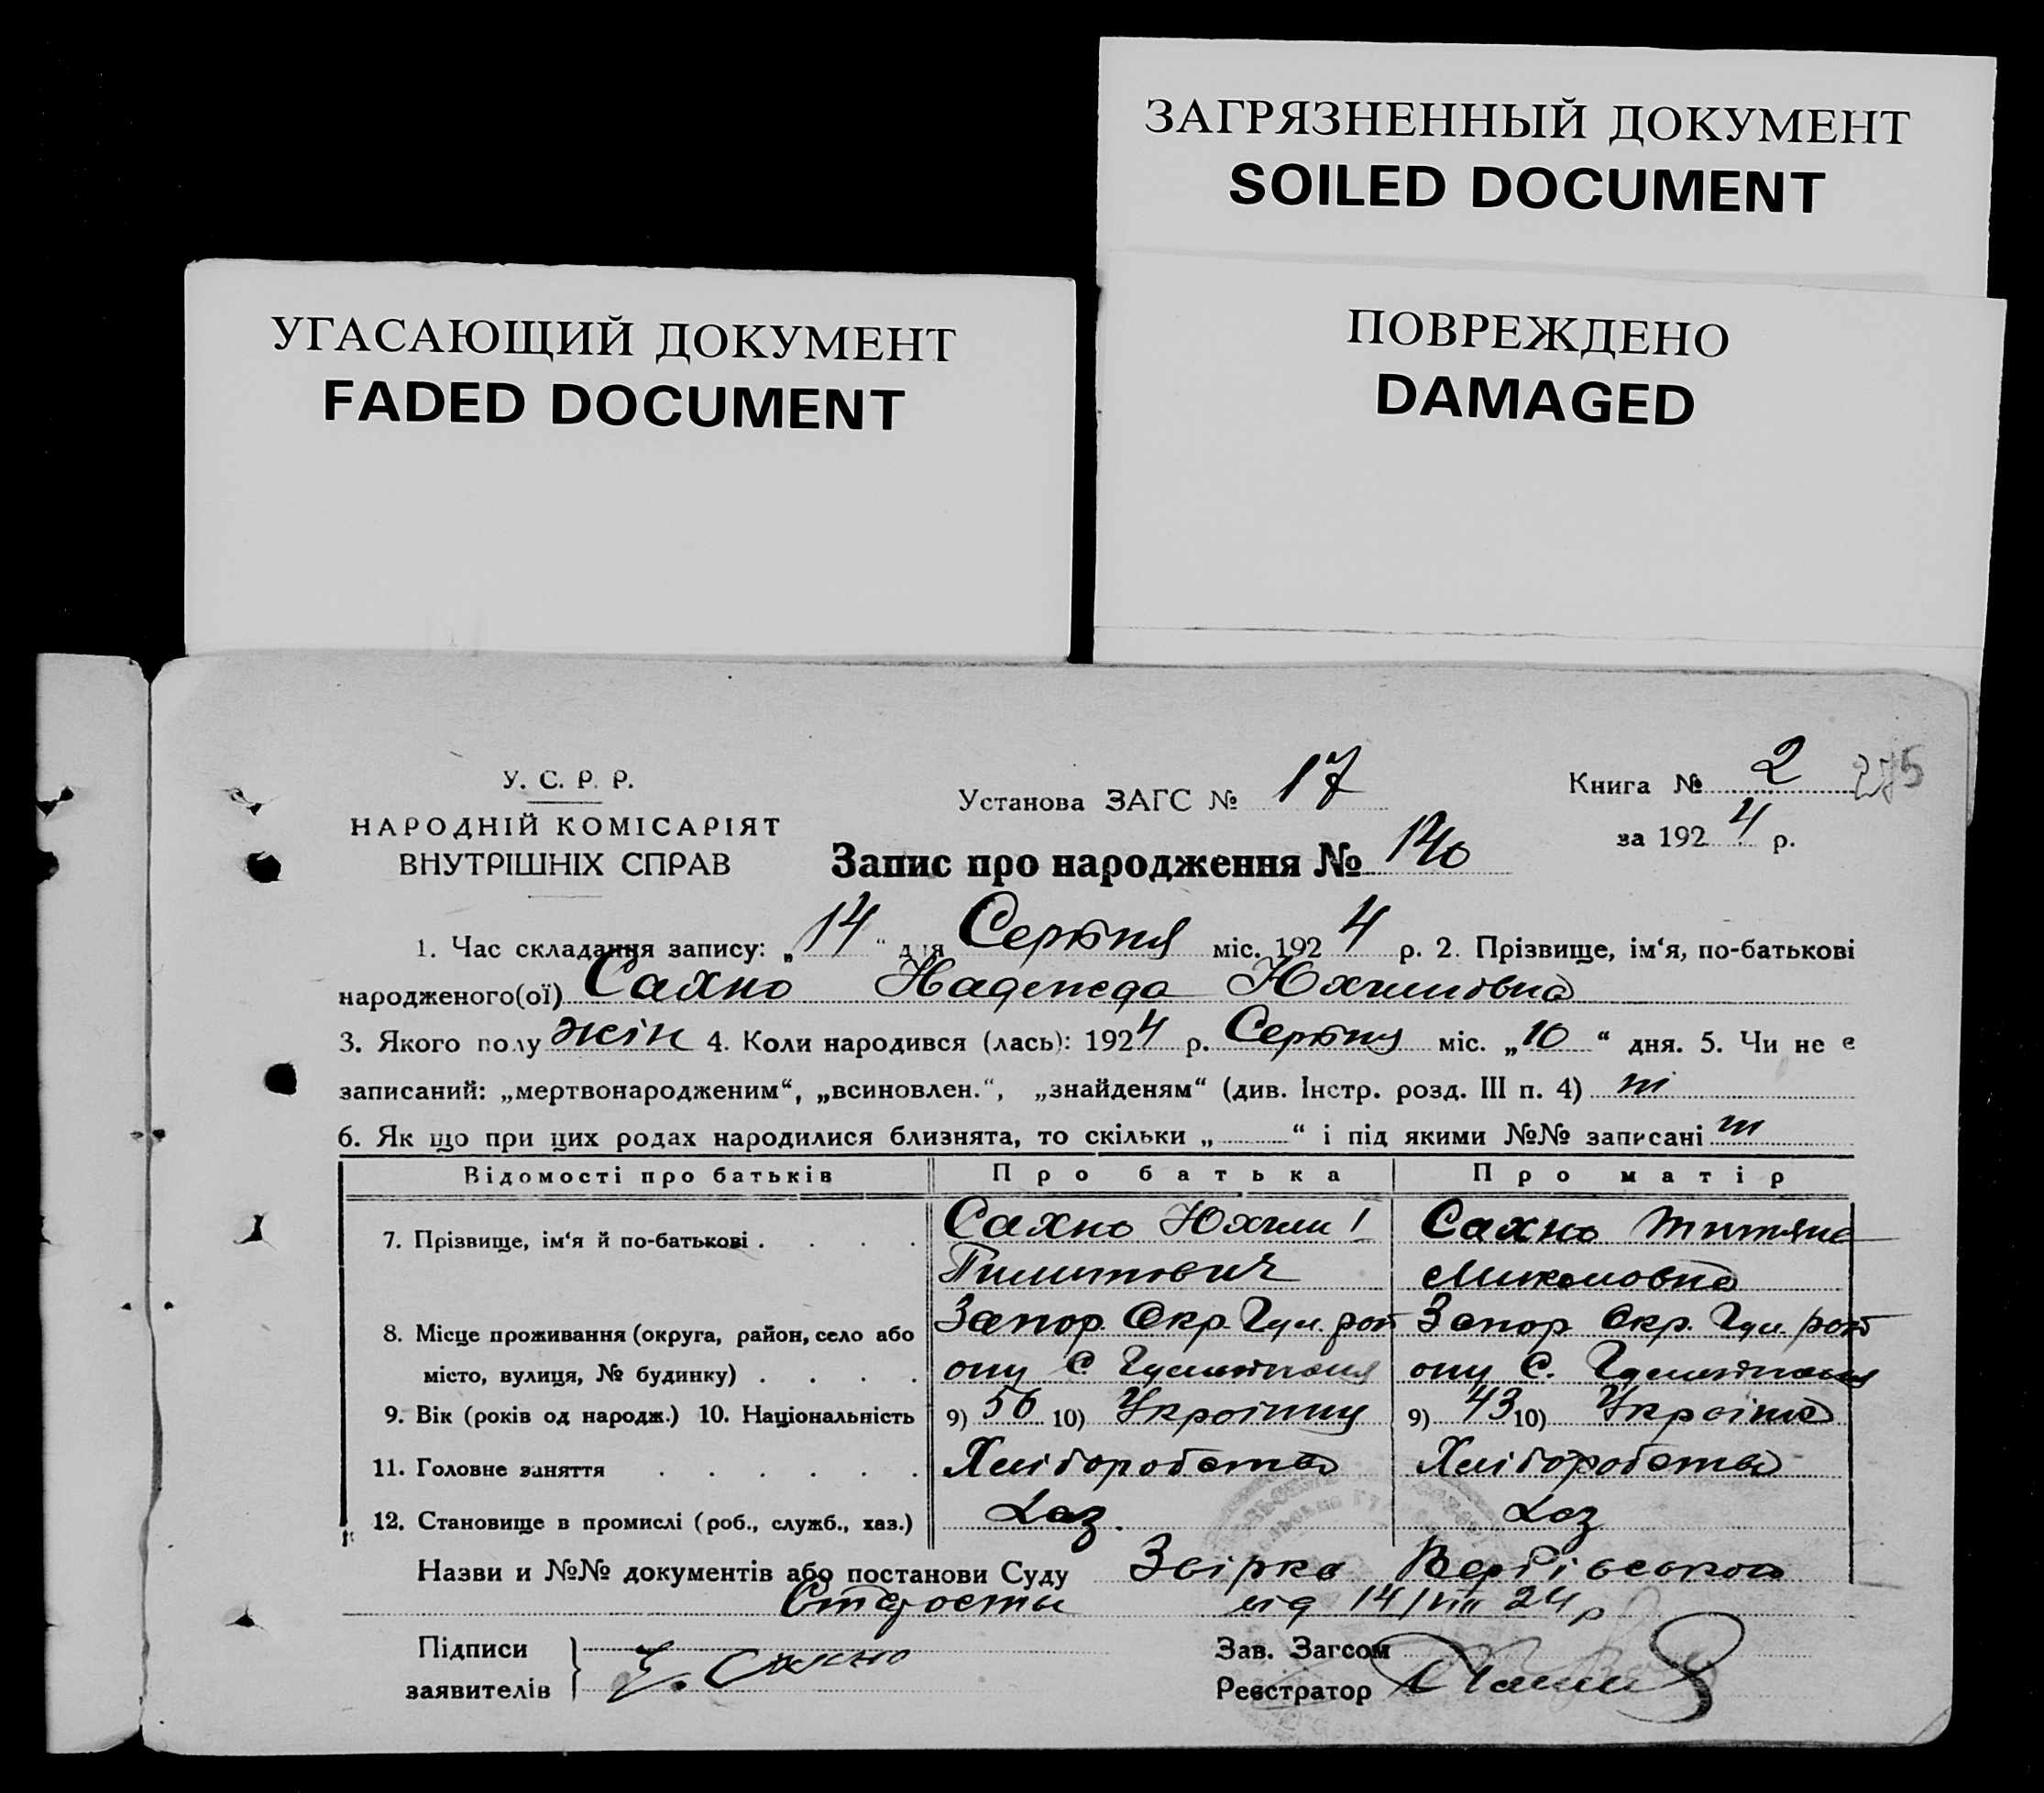 ЗАГРЯЗНЕННЫЙ ДОКУМЕНТ
SOILED DOCUMENT
УГАСАЮЩИЙ ДОКУМЕНТ
FADED DOCUMENT
ПОВРЕЖДЕНО
DAMAGED
У. С. Р. Р.
НАРОДНІЙ КОМІСАРІЯТ
ВНУТРІШНІХ СПРАВ
Установа ЗАГС № 17
Книга № 2 275
за 1924 р.
Запис про народження № 140
1. Час складання запису: „14“ дня Серпня міс. 1924 р. 2. Прізвище, ім‘я, по-батькові
народженого(ої) Сахно Надежда Юхимовна
3. Якого полу жін 4. Коли народився (лась): 1924 р. Серпня міс. „10“ дня. 5. Чи не є
записаний: „мертвонародженим“, „всиновлен.“, „знайденям“ (див. Інстр. розд. III п. 4) ні
6. Як що при цих родах народилися близнята, то скільки „ “ і під якими №№ записані ні
Відомості про батьків Про батька Про матір
7. Прізвище, ім‘я й по-батькові . . . . Сахно Юхим Сахно Титяна
Пилипович Миколовна
8. Місце проживання (округа, район, село або Запор. Окр. Гул. рай Запор Окр. Гул. рай
місто, вулиця, № будинку) . . . . ону С. ону С.
9. Вік (років од народж.) 10. Національність 9) 56 10) Українец 9) 43 10) Українка
11. Головне заняття . . . . . . Хліборобства Хліборобства
12. Становище в промислі (роб., служб., хаз.) Хаз. Хаз
Назви и №№ документів або постанови Суду Звірка Вербівського
Старости від 14/VIII 24 р
Підписи
заявителів Сахно
Зав. Загсом
Реєстратор